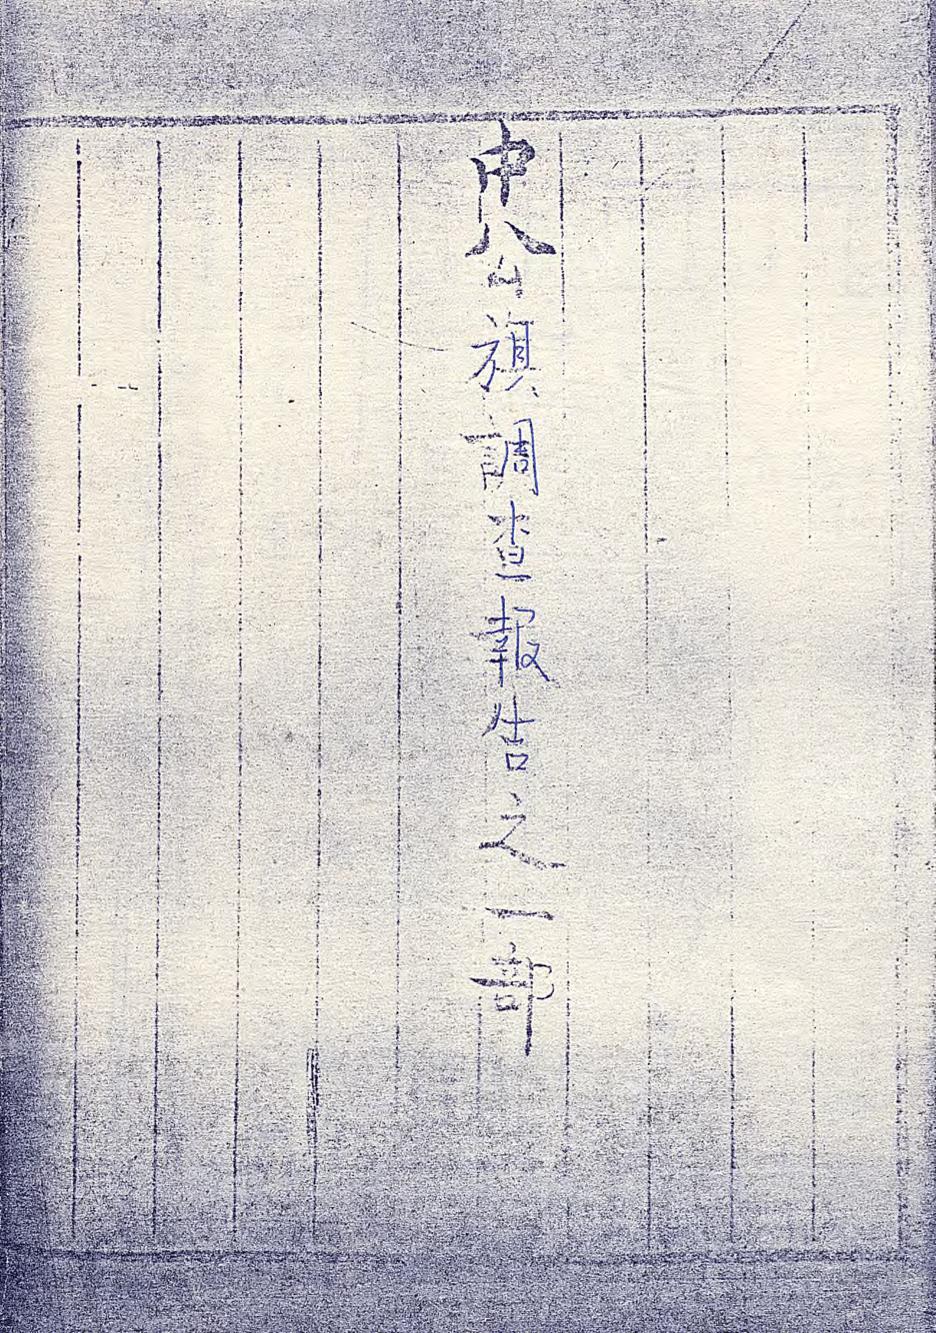 中公旗調查報告之一部